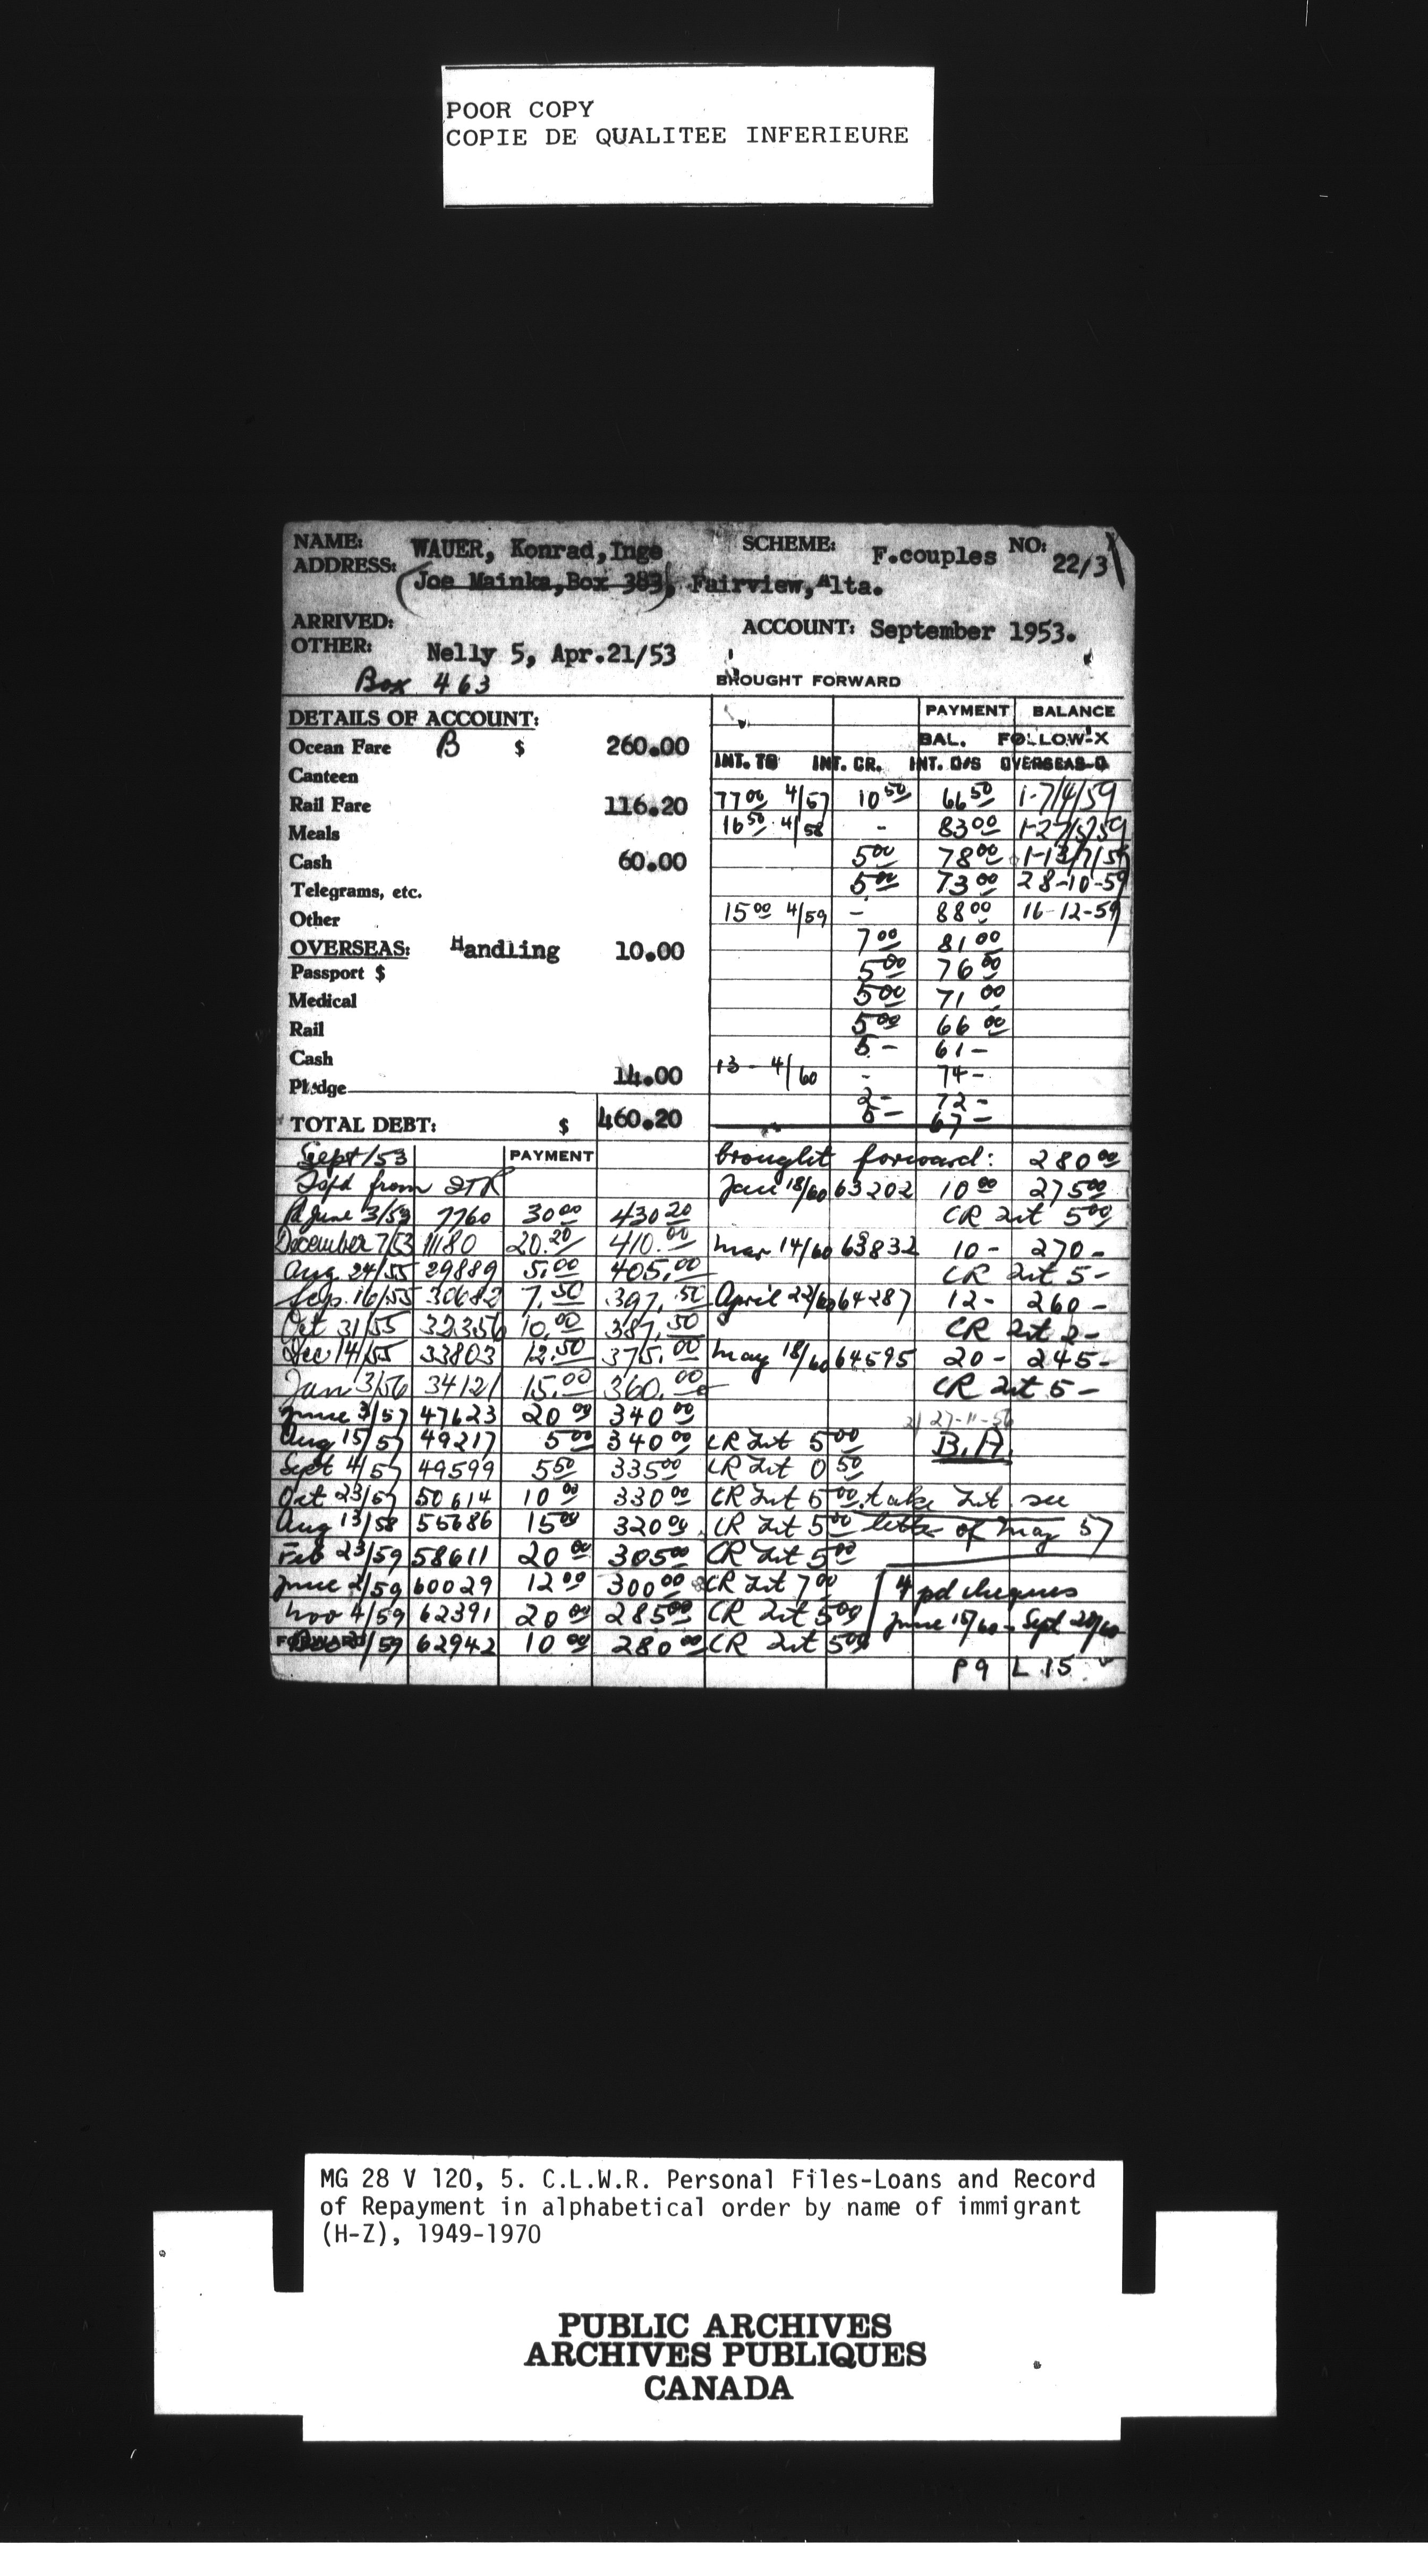 POOR COPY
COPIE DE QUALITEE INFERIEURE
NAME: WAUER, Konrad,Inge SCHEME: F.couples NO: 22/3
ADDRESS: (Joe Mainka,Box 383), Fairview,Alta.
ARRIVED: ACCOUNT: September 1953.
OTHER: Nelly 5, Apr.21/53
Box 463 BROUGHT FORWARD
DETAILS OF ACCOUNT: PAYMENT BALANCE
Ocean Fare B $ 260.00 BAL. FOLLOW-X
Canteen INT. TO INT. CR. INT. O/S OVERSEAS-O
Rail Fare 116.20 77 00 4/57 10 50 66 50 1-7/4/59
Meals 16 50 4/58 - 83 00 1-27/5/59
Cash 60.00 5 00 78 00 1-13/7/59
Telegrams, etc. 5 00 73 00 28-10-59
Other 15 00 4/59 - 88 00 16-12-59
OVERSEAS: Handling 10.00 7 00 81 00
Passport $ 5 00 76 00
Medical 5 00 71 00
Rail 5 00 66 00
Cash 5 - 61 -
14.00 13 - 4/60 - 74 -
Pledge 2 - 72 -
TOTAL DEBT: $ 460.20 5 - 67 -
Sept/53 PAYMENT brought forward: 280 00
from Jan 18/60 63202 10 00 275 00
June 3/53 7760 30 00 430 20 CR Int 5 00
December 7/53 11180 20.20 410.00 Mar 14/60 63832 10 - 270 -
Aug 24/55 29889 5.00 405.00 CR Int 5 -
Sep. 16/55 30682 7.50 397.50 April 22/60 64287 12 - 260 -
Oct 31/55 32356 10.00 387.50 CR Int 2 -
Dec 14/55 33803 12.50 375.00 May 18/60 64595 20 - 245 -
Jan 3/56 34121 15.00 360.00 CR Int 5 -
June 3/57 47623 20 00 340 00 27-11-56
Aug 15/57 49217 5 00 340 00 CR Int 5 00 B.A.
Sept 4/57 49599 5 50 335 00 CR Int 0 50
Oct 23/57 50614 10 00 330 00 CR Int 5 00 take Int. see
Aug 13/58 55686 15 00 320 00 CR Int 5 00 letter of May 57
Feb 23/59 58611 20 00 305 00 CR Int 5 00
June 2/59 60029 12 00 300 00 CR Int 7 00 4 pd cheques
Nov 4/59 62391 20 00 285 00 CR Int 5 00 June 15/60 - Sept 28/60
FORWARD /59 62942 10 00 280 00 CR Int 5 00
P9 L 15
MG 28 V 120, 5. C.L.W.R. Personal Files-Loans and Record
of Repayment in alphabetical order by name of immigrant
(H-Z), 1949-1970
PUBLIC ARCHIVES
ARCHIVES PUBLIQUES
CANADA